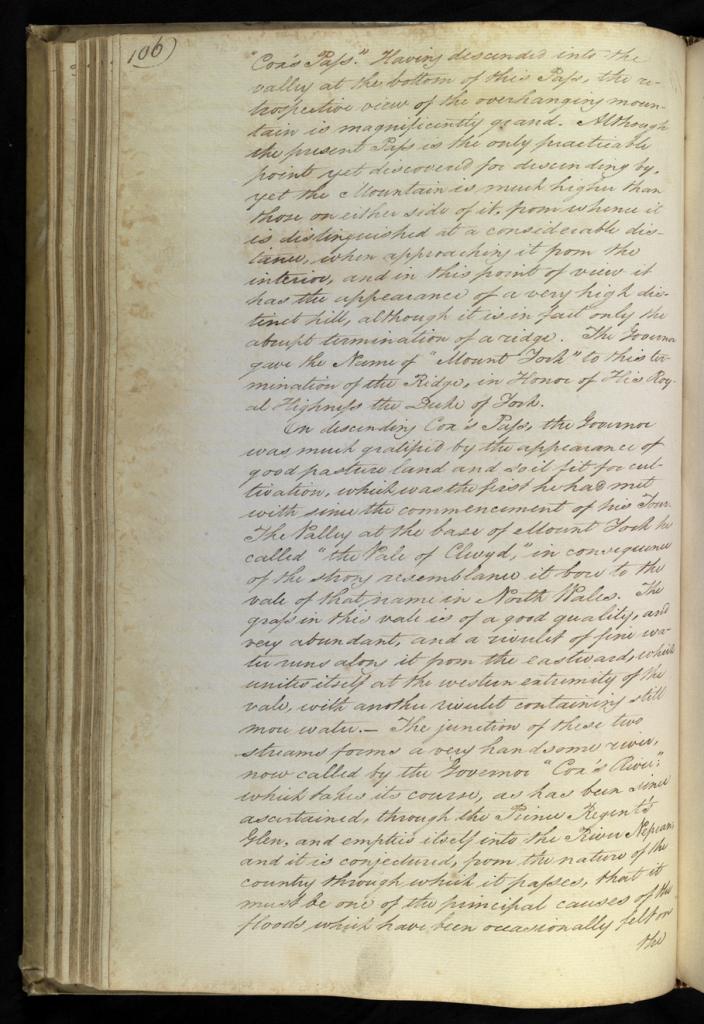 106)
"Cox's Pass." Having descended into the
valley at the bottom of this Pass, the re-
trospective view of the overhanging moun-
tain is magnificently grand. Although
the present Pass is the only practicable
point yet discovered for descending by,
yet the Mountain is much higher than
those on either side of it, from whence it
is distinguished at a considerable dis-
tance, when approaching it from the
interior, and in this point of view it
has the appearance of a very high dis-
tinct hill, although it is in fact only the
abrupt termination of a ridge. The Governor
gave the Name of "Mount York" to this ter-
mination of the Ridge, in Honor of His Roy-
al Highness the Duke of York.
On descending Cox's Pass, the Governor
was much gratified by the appearance of
good pasture land and soil fit for cul-
tivation, which was the first he had met
with since the commencement of his Tour.
The Valley at the base of Mount York he
called "the Vale of Clwyd," in consequence
of the strong resemblance it bore to the
vale of that name in North Wales. The
grass in this vale is of a good quality, and
very abundant, and a rivulet of fine wa-
ter runs along it from the eastward, which
unites itself at the western extremity of the
vale, with another rivulet containing still
more water.— The junction of these two
streams forms a very handsome river,
now called by the Governor "Cox's River;"
which takes its course, as has been since
ascertained, through the Prince Regent's
Glen, and empties itself into the River Nepean,
and it is conjectured, from the nature of the
country through which it passes, that it
must be one of the principal causes of the
floods which have been occasionally felt on
the